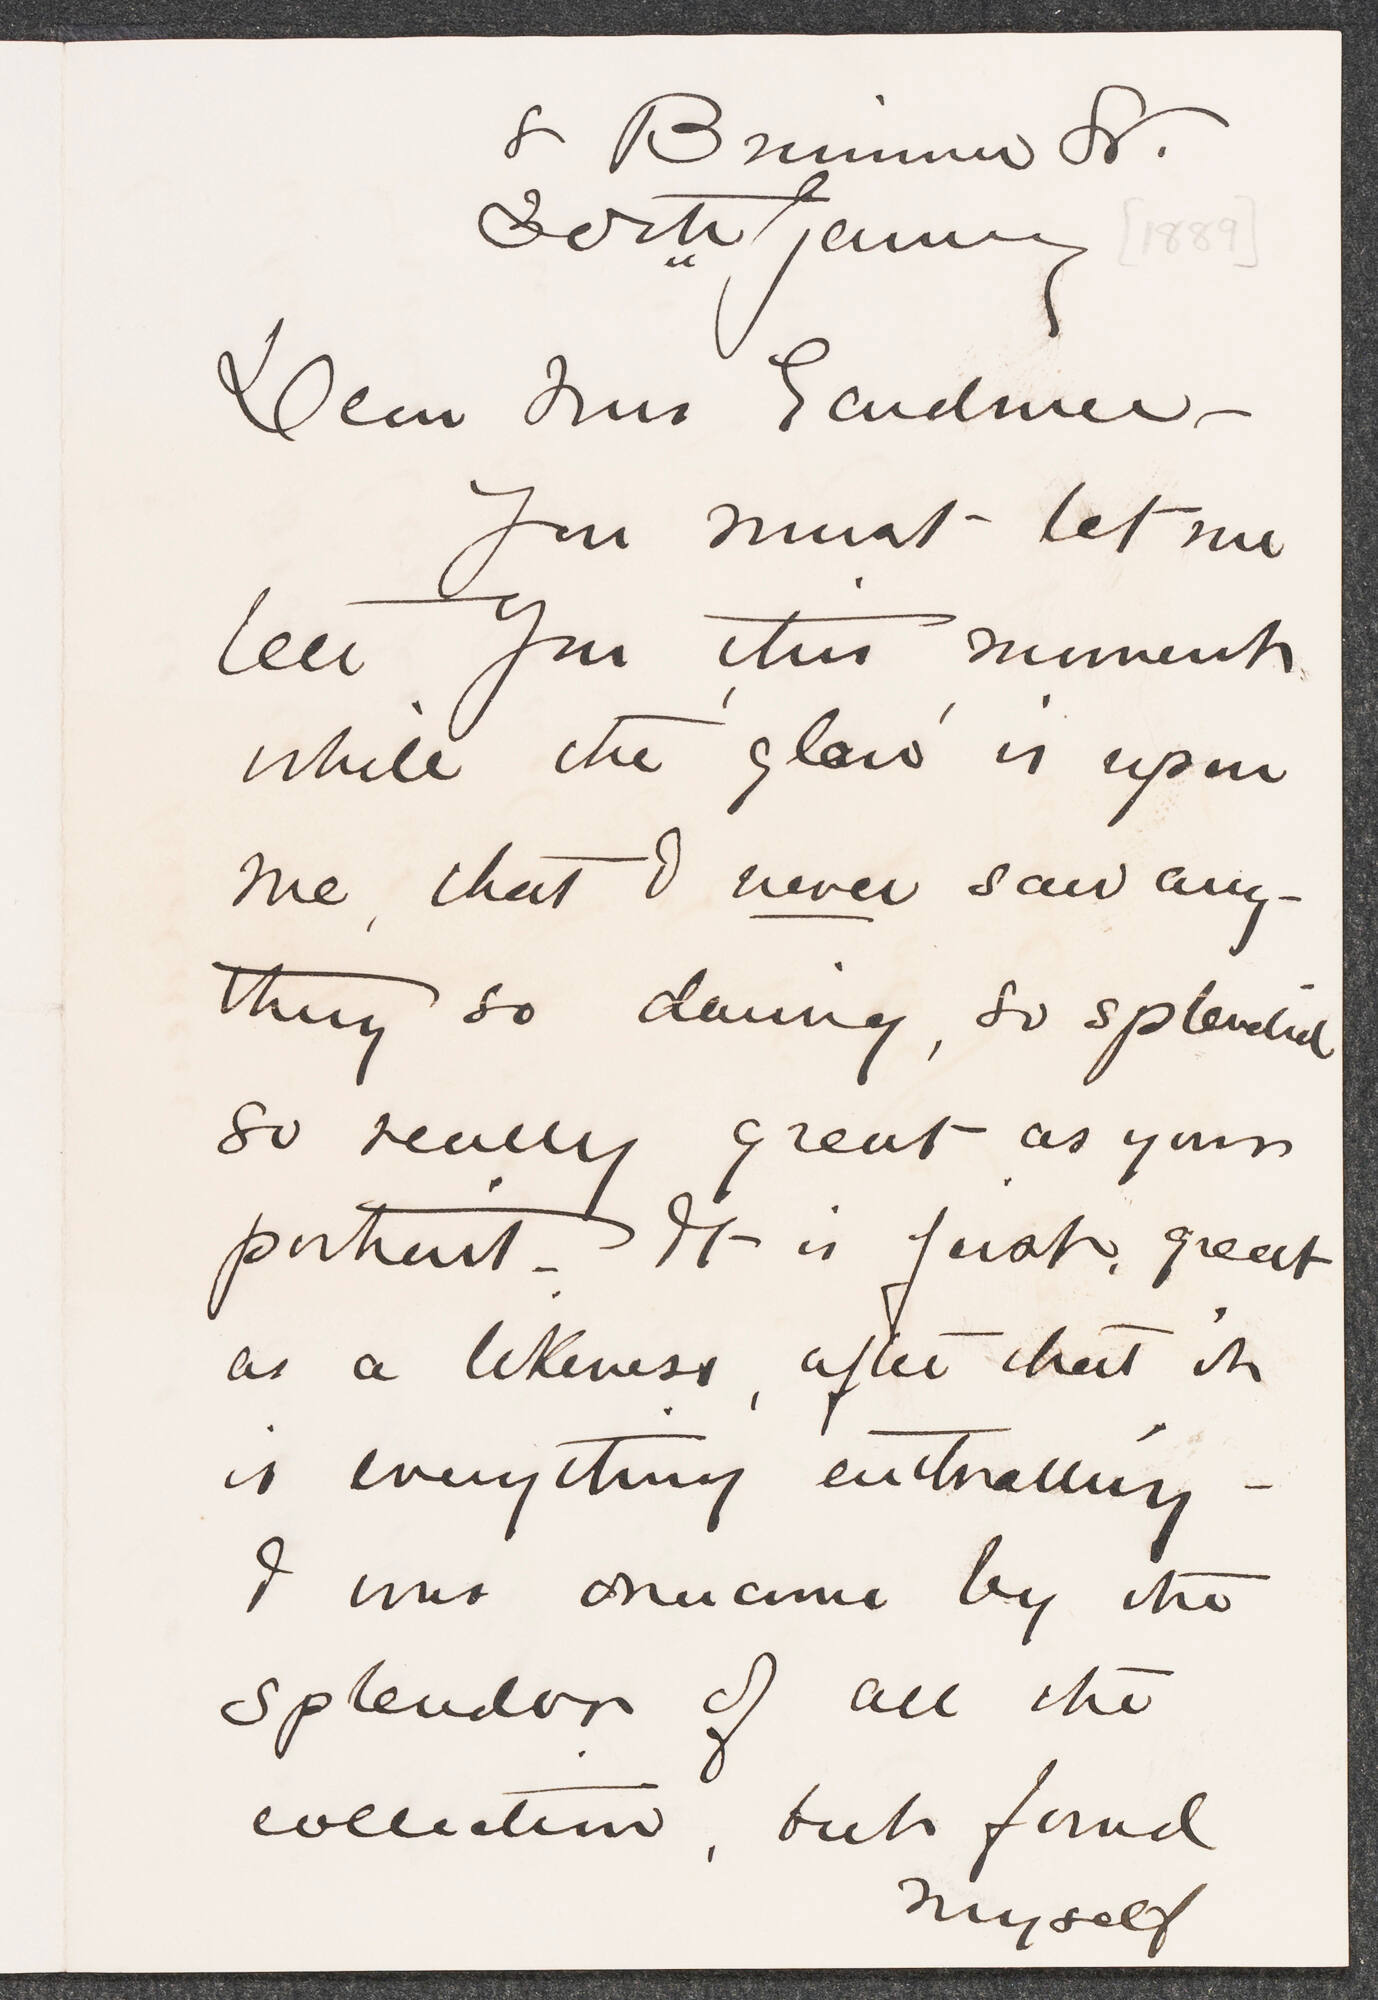 8 Brimmer St.
30th January [1889]
Dear Mrs Gardner -
You must let me
tell you this moment
while the 'glow' is upon
me, that I never saw any-
thing so daring, so splendid
so really great as your
portrait - It is first, great
as a likeness, after that it
is everything enthralling -
I was overcome by the
splendor of all the
collection, but found
myself